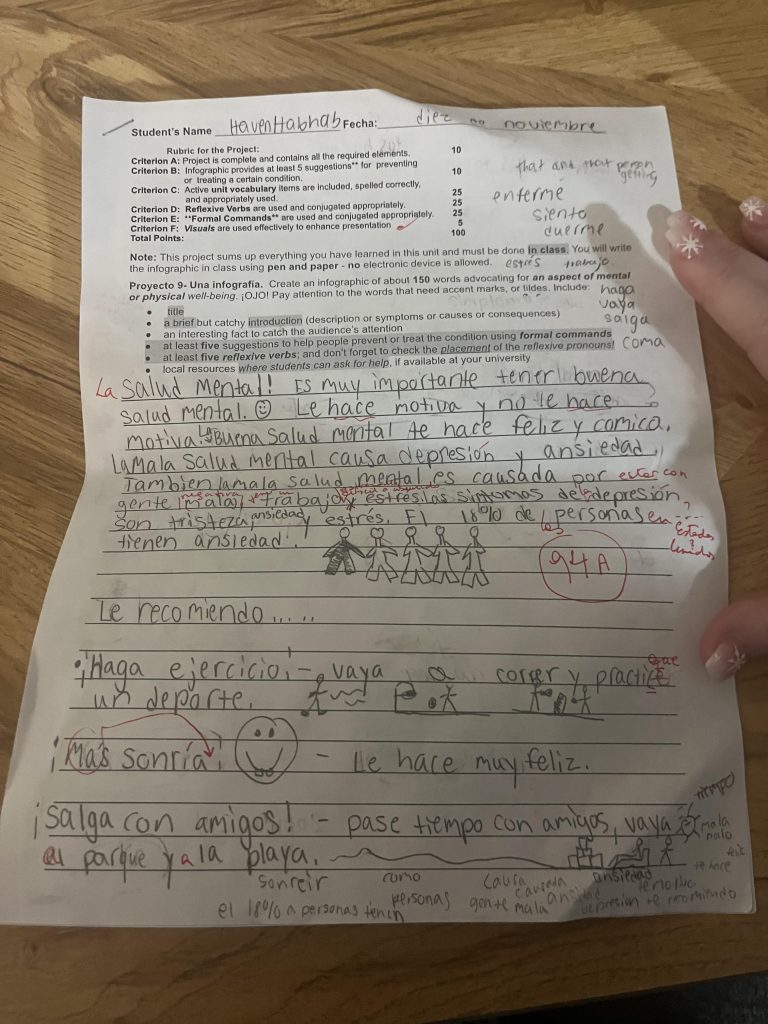 Student's Name Haven Habhab Fecha: diez no noviembre
Rubric for the Project:
Criterion A: Project is complete and contains all the required elements. 10
Criterion B: Infographic provides at least 5 suggestions** for preventing or treating a certain condition. 10
Criterion C: Active unit vocabulary items are included, spelled correctly, and appropriately used. 25
Criterion D: Reflexive Verbs are used and conjugated appropriately. 25
Criterion E: **Formal Commands** are used and conjugated appropriately. 25
Criterion F: Visuals are used effectively to enhance presentation 5
Total Points: 100
that and that person getting
enferme
siento
duerme
Note: This project sums up everything you have learned in this unit and must be done in class. You will write
the infographic in class using pen and paper - no electronic device is allowed. estrés trabajo
Proyecto 9- Una infografía. Create an infographic of about 150 words advocating for an aspect of mental
or physical well-being. ¡OJO! Pay attention to the words that need accent marks, or tildes. Include:
haga
vaya
salga
coma
• title
• a brief but catchy introduction (description or symptoms or causes or consequences)
• an interesting fact to catch the audience's attention
• at least five suggestions to help people prevent or treat the condition using formal commands
• at least five reflexive verbs; and don't forget to check the placement of the reflexive pronouns!
• local resources where students can ask for help, if available at your university
La Salud Mental! Es muy importante tener buena
salud mental. Le hace motiva y no le hace
motiva. La Buena Salud mental te hace feliz y comica.
La Mala Salud mental causa depresión y ansiedad.
Tambien la mala salud mental es causada por estar con
gente mala, negativa trabajo y estrés. las sintomas de la depresión
son tristeza, ansiedad y estrés. El 18% de las personas en Estados Unidos?
tienen ansiedad!
94 A
Le recomiendo.....
• ¡Haga ejercicio! - vaya a correr y practice que
un deporte.
¡Más sonría! - Le hace muy feliz.
¡Salga con amigos! - pase tiempo con amigos, vaya
al parque y a la playa.
tiempo
mala
malo
feliz
te hace
sonreir como causa causada ansiedad
el 18% a personas tienen personas gente mala ansiedad depresion te recomiendo